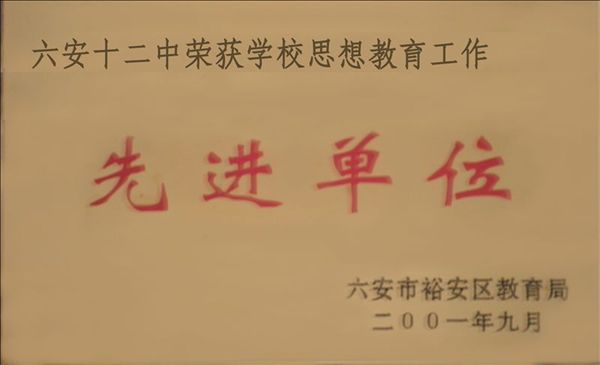 六安十二中荣获学校思想教育工作
先进单位
六安市裕安区教育局
二〇〇一年九月